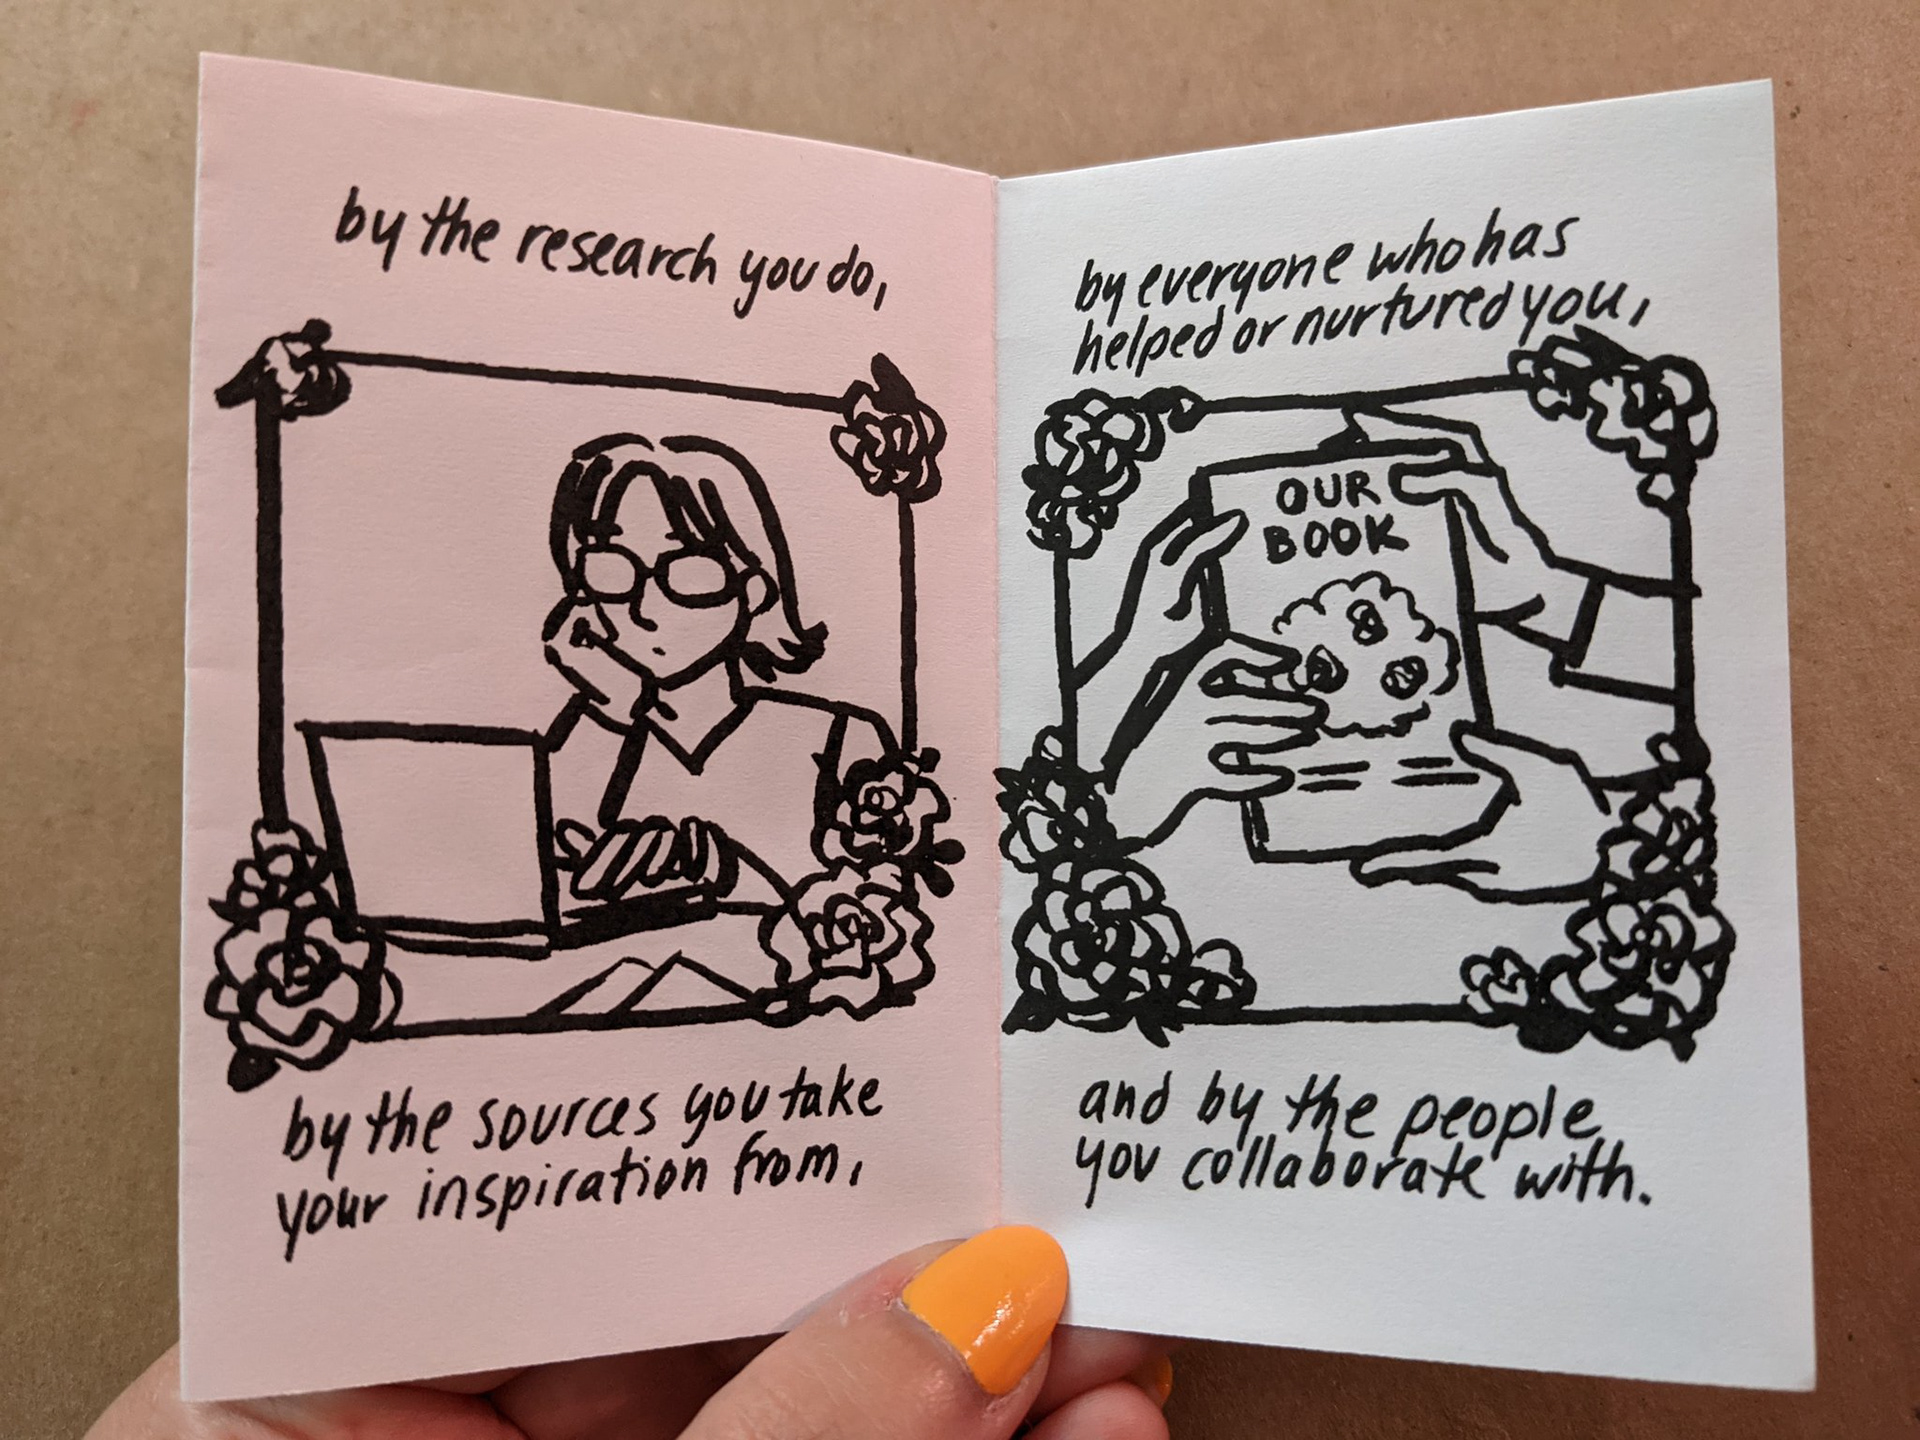 by the research you do,
by the sources you take
your inspiration from,
by everyone who has
helped or nurtured you,
OUR
BOOK
and by the people
you collaborate with.